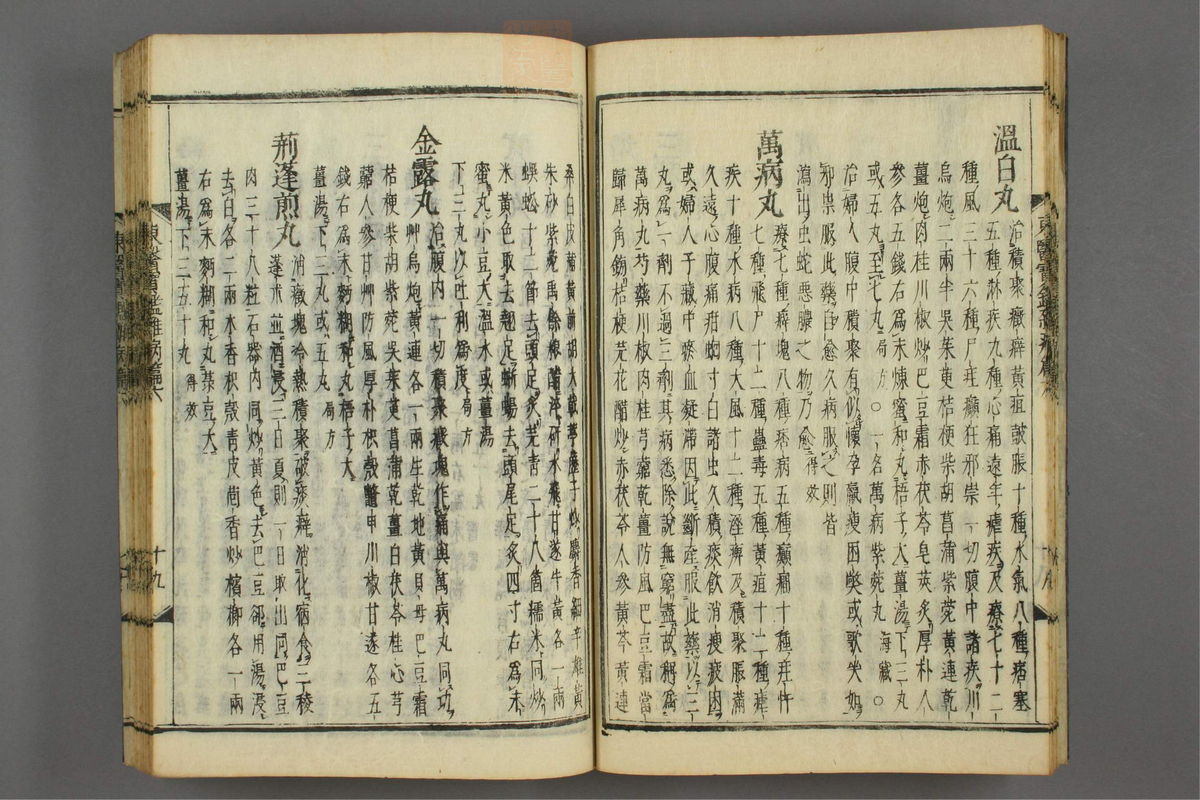 溫白丸 治積聚癥癖黃疸鼓脹十種水氣八種痞塞
五種淋疾九種心痛遠年瘧疾及療七十二
種風三十六種尸疰癲狂邪祟一切腹中諸疾川
烏炮二兩半吳茱萸桔梗柴胡菖蒲紫菀黃連乾
薑炮肉桂川椒炒巴豆霜赤茯苓皂莢炙厚朴人
參各五錢右爲末煉蜜和丸梧子大薑湯下三丸
或五丸至七丸 局方 ○一名萬病紫菀丸 海藏 ○
治婦人腹中積聚有似懷孕羸瘦困弊或歌哭如
邪祟服此藥自愈久病服之則皆
瀉出虫蛇惡膿之物乃愈 得效
萬病丸 療七種癖塊八種痞病五種癲癎十種疰忤
七種飛尸十二種蠱毒五種黃疸十二種瘧
疾十種水病八種大風十二種溼痺及積聚脹滿
久遠心腹痛疳蛔寸白諸虫久積痰飮消瘦疲困
或婦人子藏中瘀血凝滯因此斷産服此藥以三
丸爲一劑不過三劑其病悉除說無窮盡故稱爲
萬病丸芍藥川椒肉桂芎藭乾薑防風巴豆霜當
歸犀角鎊桔梗芫花醋炒赤茯苓人參黃芩黃連
桑白皮蒲黃前胡大戟葶藶子炒麝香細辛雄黃
朱砂紫菀禹餘粮醋淬硏水飛甘遂牛黃各一兩
蜈蚣十二節去頭足炙芫靑二十八箇糯米同炒
米黃色取去翅足蜥蜴去頭尾足炙四寸右爲末
蜜丸小豆大溫水或薑湯
下三丸以吐利爲度 局方
金露丸 治腹內一切積聚癥塊作痛與萬病丸同功
艸烏炮黃連各一兩生乾地黃貝母巴豆霜
桔梗柴胡紫菀吳茱萸菖蒲乾薑白茯苓桂心芎
藭人參甘艸防風厚朴枳殼鱉甲川椒甘遂各五
錢右爲末麪糊和丸梧子大
薑湯下三丸或五丸 局方
荊蓬煎丸 消癥塊冷熱積聚破痰癖消化宿食三稜
蓬朮並酒浸三日夏則一日取出同巴豆
肉三十八粒石器內同炒黃色去巴豆卻用湯浸
去白各二兩木香枳殼靑皮茴香炒檳榔各一兩
右爲末麪糊和丸菉豆大
薑湯下三五十丸 得效
十九